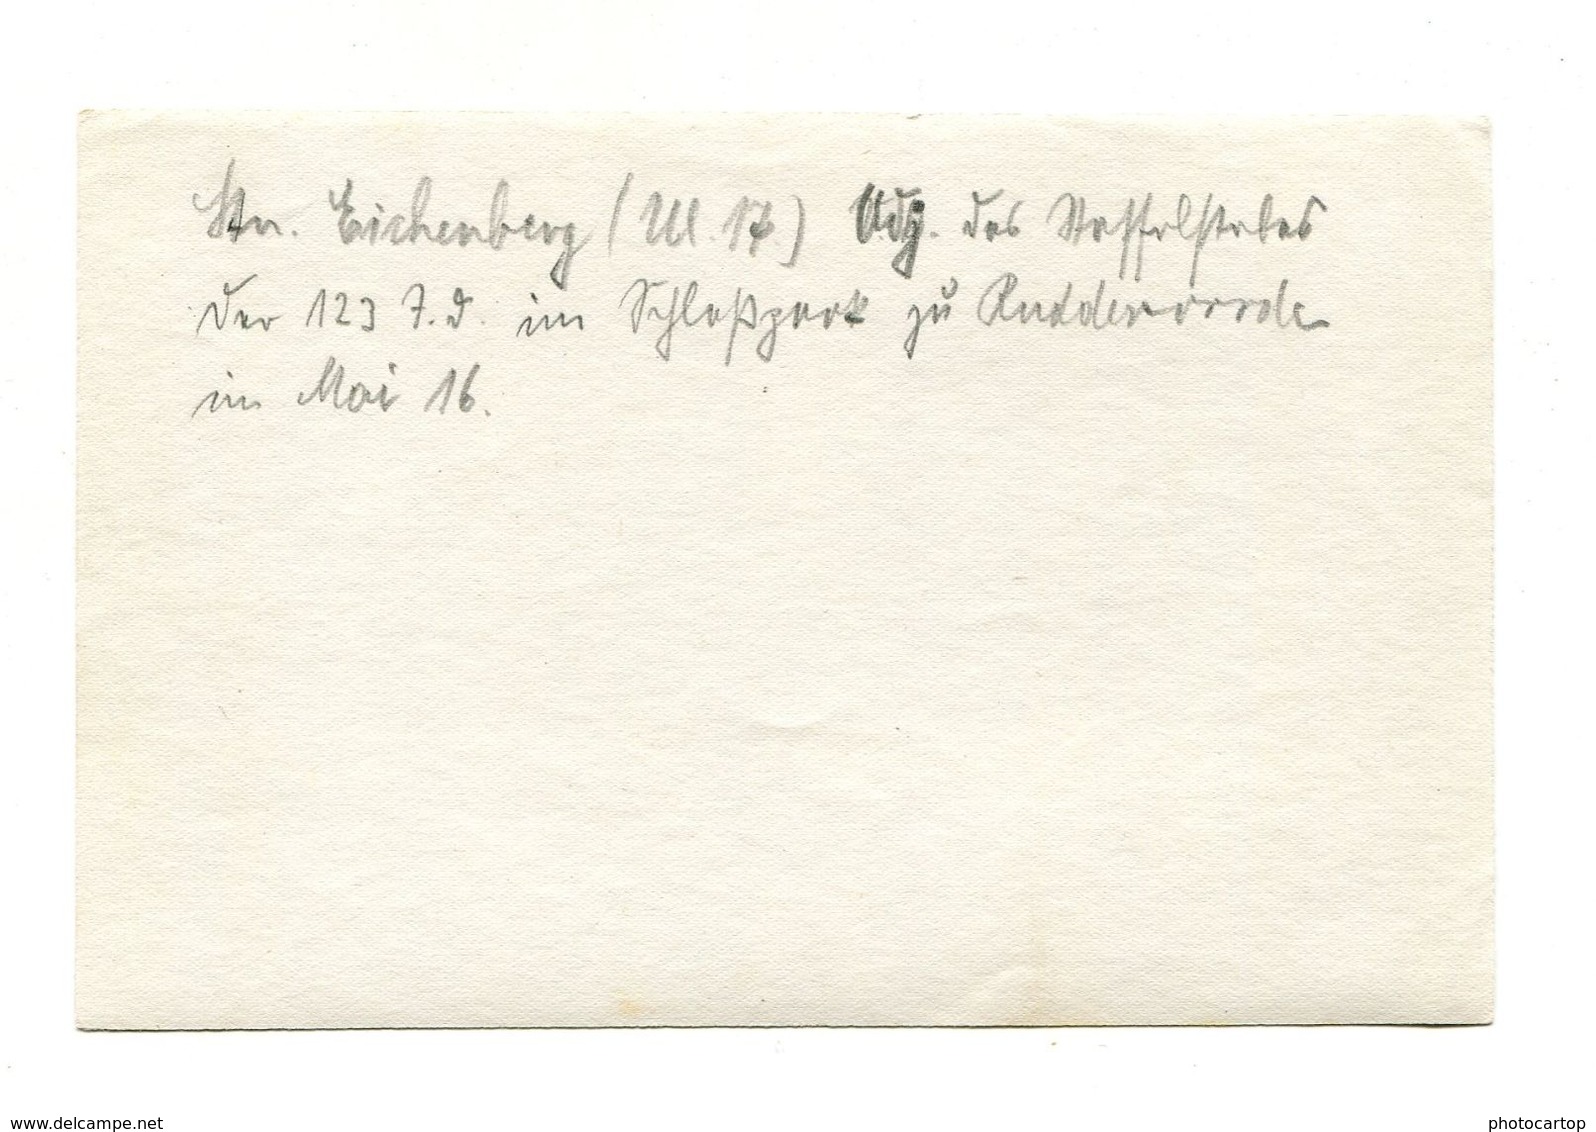 Ltn. Eichenberg (Ul. 17.) Adj. des Staffelstabes
der 123 J.D. im Schloßpark zu Ruddervoorde
im Mai 16.
www.delcampe.net
photocartop